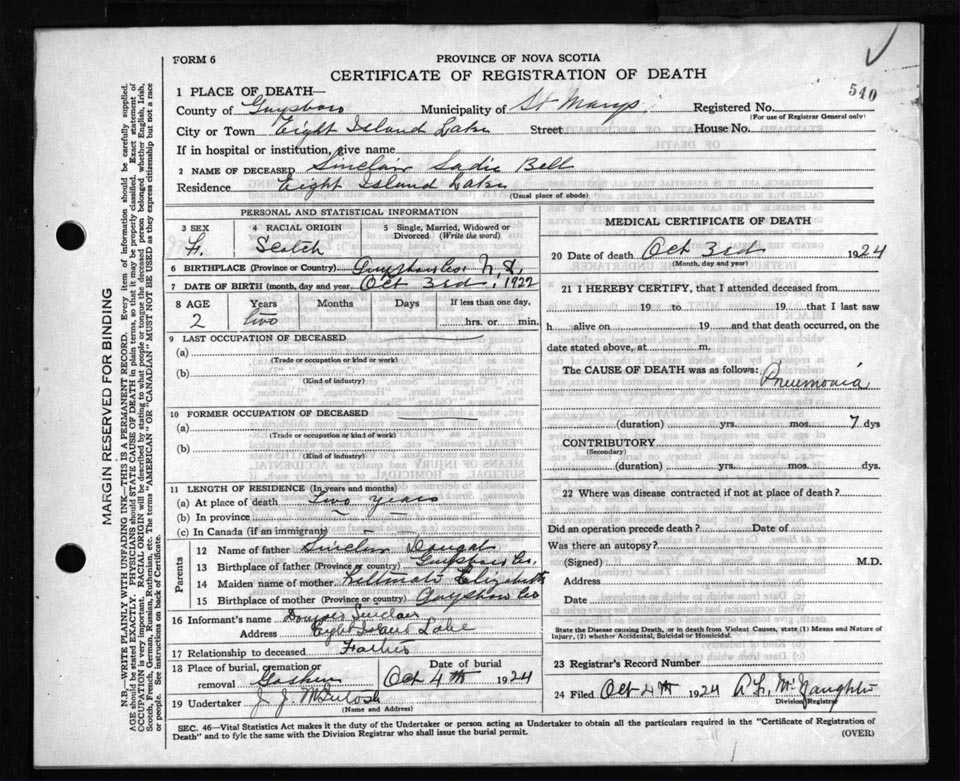 FORM 6
PROVINCE OF NOVA SCOTIA
CERTIFICATE OF REGISTRATION OF DEATH
540
1 PLACE OF DEATH—
County of Guysboro Municipality of St Marys Registered No.
(For use of Registrar General only)
City or Town Eight Island Lake Street House No.
If in hospital or institution, give name
2 NAME OF DECEASED Sinclair Sadie Bell
Residence Eight Island Lake
(Usual place of abode)
PERSONAL AND STATISTICAL INFORMATION
3 SEX 4 RACIAL ORIGIN 5 Single, Married, Widowed or Divorced (Write the word)
F. Scotch
6 BIRTHPLACE (Province or Country) Guysboro Co. N.S.
7 DATE OF BIRTH (month, day and year) Oct 3rd, 1922
8 AGE Years Months Days If less than one day,
2 two hrs. or min.
9 LAST OCCUPATION OF DECEASED
(a)
(Trade or occupation or kind or work)
(b)
(Kind of industry)
10 FORMER OCCUPATION OF DECEASED
(a)
(Trade or occupation or kind of work)
(b)
(Kind of industry)
11 LENGTH OF RESIDENCE (In years and months)
(a) At place of death two years
(b) In province
(c) In Canada (if an immigrant)
Parents
12 Name of father Sinclair Dougal
13 Birthplace of father (Province or country) Guysboro Co.
14 Maiden name of mother Elizabeth
15 Birthplace of mother (Province or country) Guysboro Co
16 Informant's name Sinclair
Address Eight Island Lake
17 Relationship to deceased Father
18 Place of burial, cremation or removal Date of burial
Oct 4th 1924
19 Undertaker J. J. McIntosh
(Name and Address)
MEDICAL CERTIFICATE OF DEATH
20 Date of death Oct 3rd 1924
(Month, day and year)
21 I HEREBY CERTIFY, that I attended deceased from
19 to 19 that I last saw
h alive on 19 and that death occurred, on the
date stated above, at m.
The CAUSE OF DEATH was as follows:
Pneumonia
(duration) yrs. mos. 7 dys
CONTRIBUTORY
(Secondary)
(duration) yrs. mos. dys.
22 Where was disease contracted if not at place of death?
Did an operation precede death? Date of
Was there an autopsy?
(Signed) M.D.
Address
Date
State the Disease causing Death, or in death from Violent Causes, state (1) Means and Nature of
Injury, (2) whether Accidental, Suicidal or Homicidal.
23 Registrar's Record Number
24 Filed Oct 4th 1924
Division Registrar
SEC. 46—Vital Statistics Act makes it the duty of the Undertaker or person acting as Undertaker to obtain all the particulars required in the "Certificate of Registration of
Death" and to fyle the same with the Division Registrar who shall issue the burial permit.
(OVER)
MARGIN RESERVED FOR BINDING
N.B.—WRITE PLAINLY WITH UNFADING INK—THIS IS A PERMANENT RECORD. Every item of information should be carefully supplied.
AGE should be stated EXACTLY. PHYSICIANS should STATE CAUSE OF DEATH in plain terms, so that it may be properly classified. Exact statement of
OCCUPATION is very important. RACIAL ORIGIN will be described by stating to what people or tongue the deceased person belonged whether English, Irish,
Scotch, French, German, Russian, Ruthenian, etc. The terms "AMERICAN" OR "CANADIAN" MUST NOT BE USED as they express citizenship but not a race
or people. See instructions on back of Certificate.